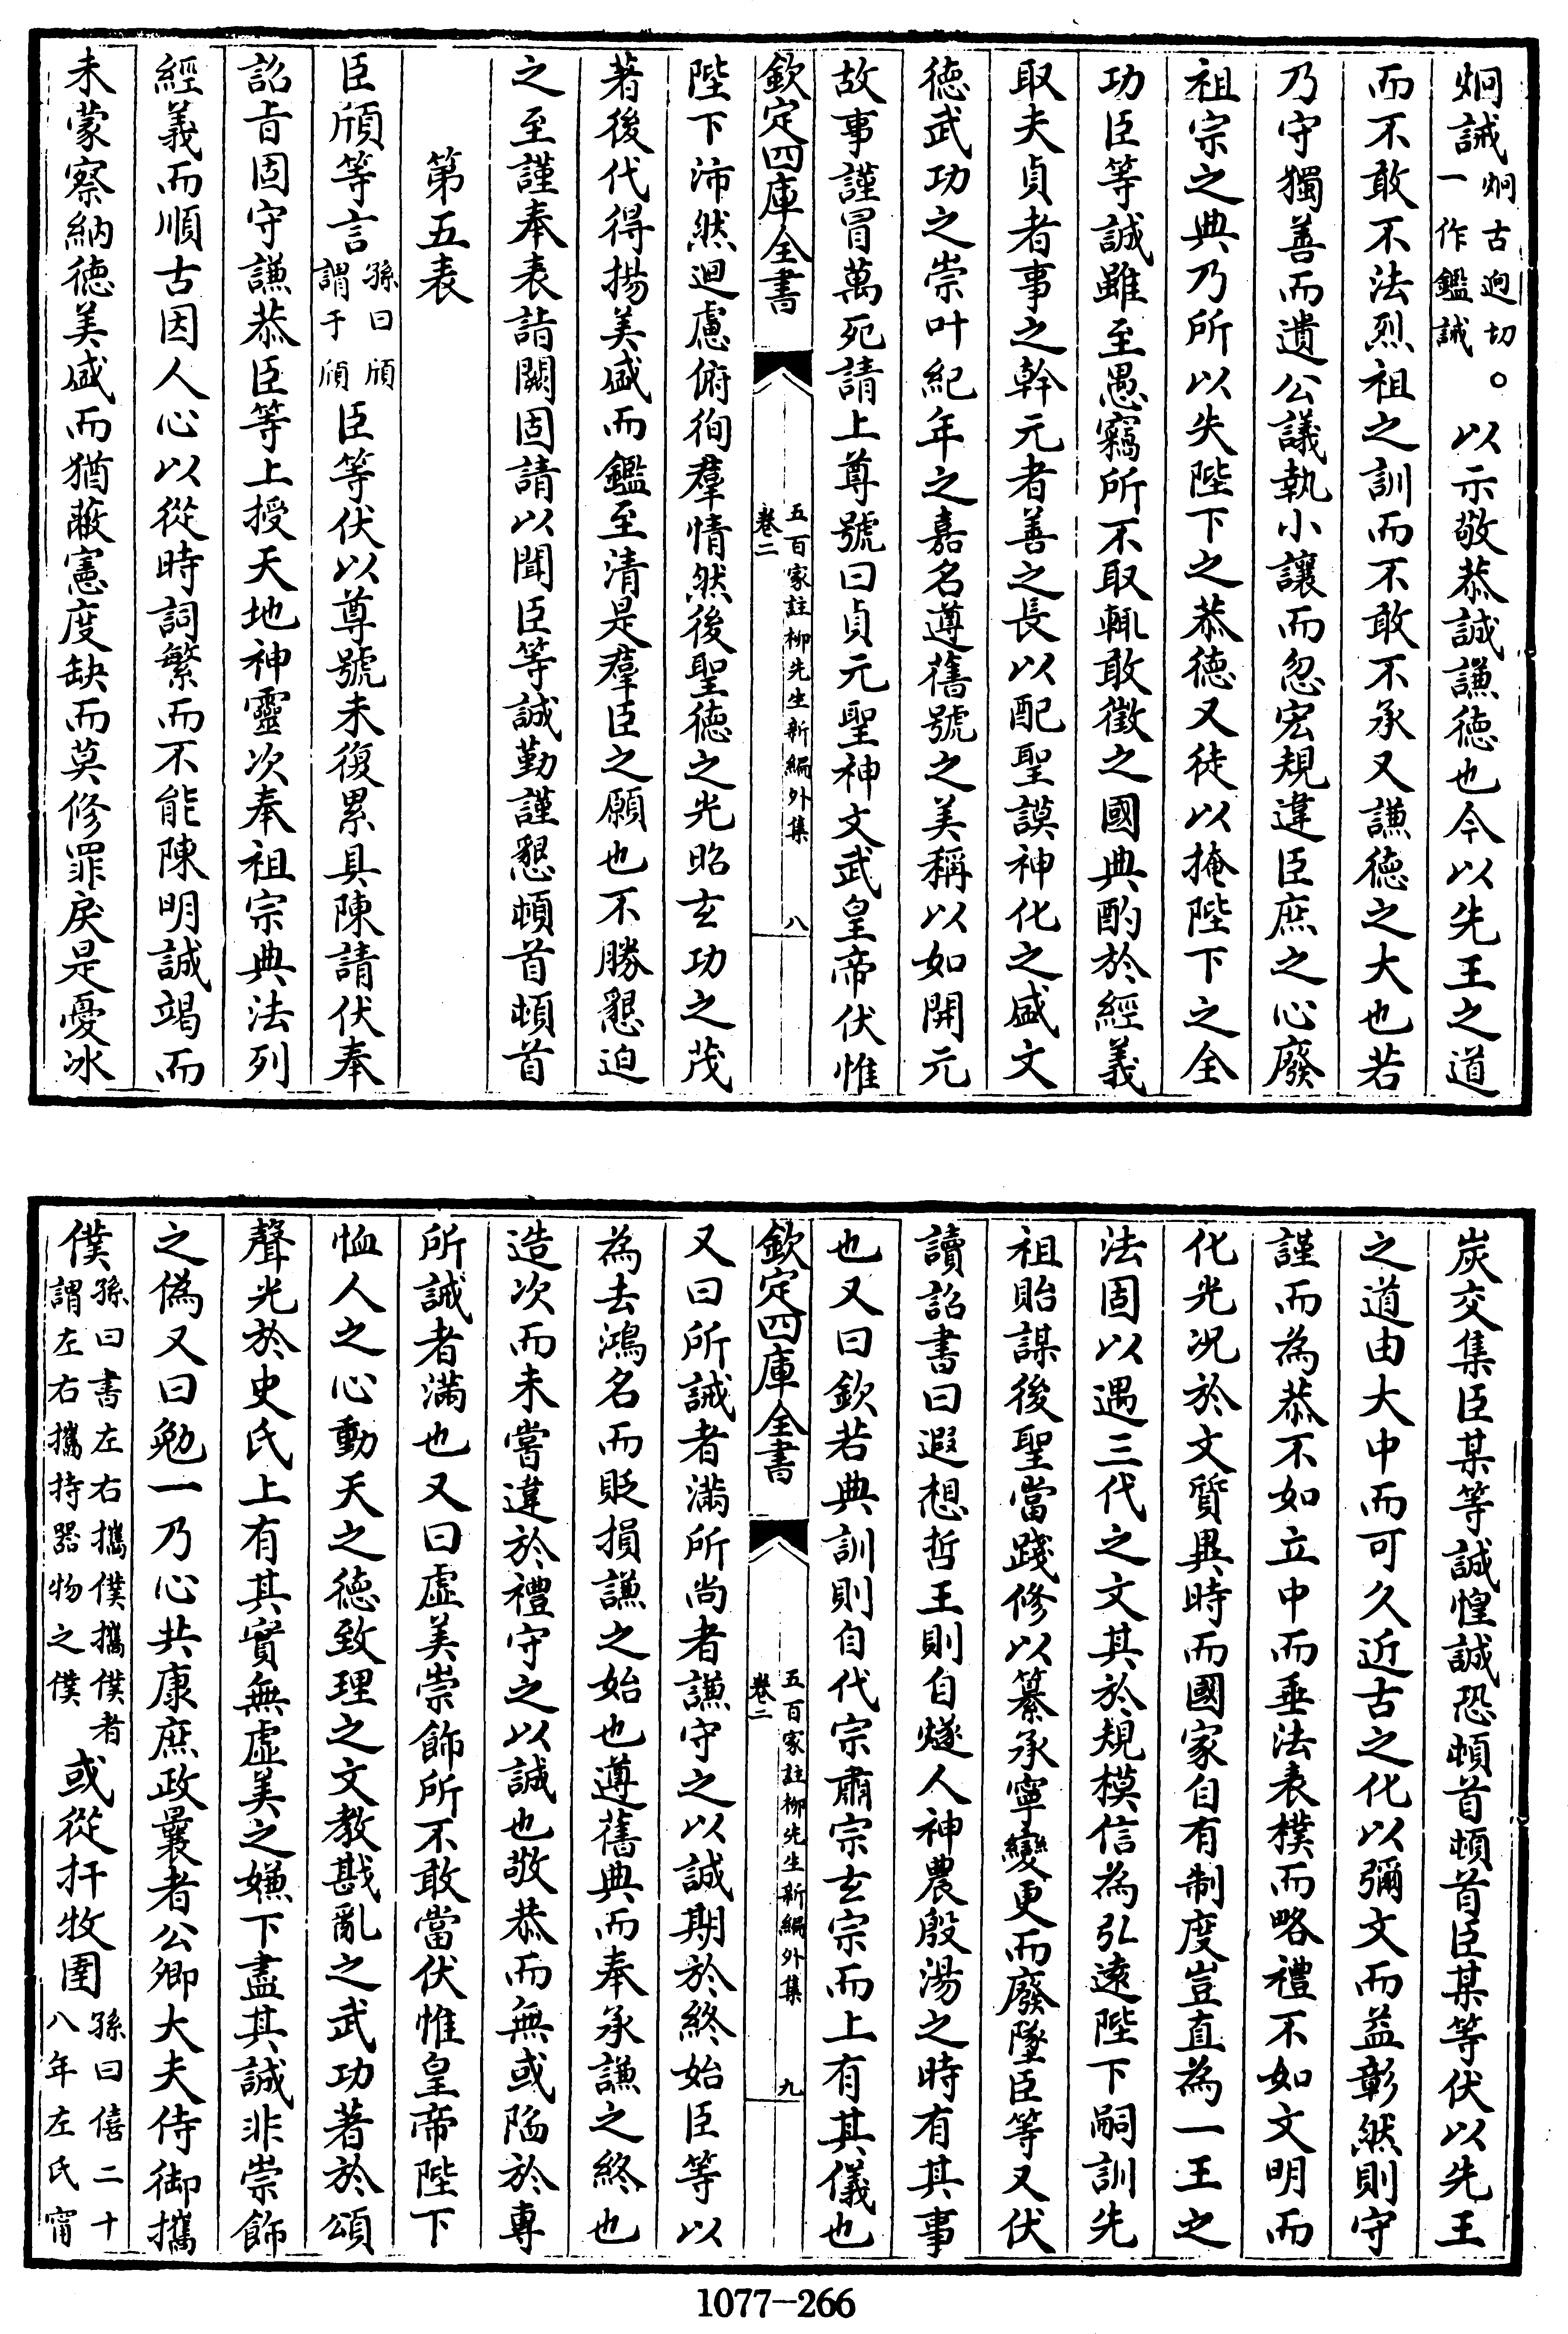 炯誡炯古迥切一作鑑誡。以示敬恭誠謙徳也今以先王之道
而不敢不法烈祖之訓而不敢不承又謙徳之大也若
乃守獨善而遺公議執小讓而忽宏規違臣庶之心廢
祖宗之典乃所以失陛下之恭徳又徒以掩陛下之全
功臣等誠雖至愚竊所不取輒敢徵之國典酌於經義
取夫貞者事之幹元者善之長以配聖謨神化之盛文
徳武功之崇叶紀年之嘉名遵舊號之美稱以如開元
故事謹冒萬死請上尊號曰貞元聖神文武皇帝伏惟
欽定四庫全書
五百家註柳先生新編外集
卷二
八
陛下沛然迴慮俯徇羣情然後聖徳之光昭玄功之茂
著後代得揚美盛而鑑至清是羣臣之願也不勝懇迫
之至謹奉表詣闕固請以聞臣等誠勤謹懇頓首頓首
第五表
臣頎等言孫曰頎謂于頎臣等伏以尊號未復累具陳請伏奉
詔㫖固守謙恭臣等上授天地神靈次奉祖宗典法列
經義而順古因人心以從時詞繁而不能陳明誠竭而
未蒙察納徳美盛而猶蔽憲度缺而莫修罪戾是憂冰
炭交集臣某等誠惶誠恐頓首頓首臣某等伏以先王
之道由大中而可久近古之化以彌文而益彰然則守
謹而為恭不如立中而垂法表樸而略禮不如文明而
化光況於文質異時而國家自有制度豈直為一王之
法固以遇三代之文其於規模信為弘逺陛下嗣訓先
祖貽謀後聖當踐修以纂承寧變更而廢墜臣等又伏
讀詔書曰遐想哲王則自燧人神農殷湯之時有其事
也又曰欽若典訓則自代宗肅宗玄宗而上有其儀也
欽定四庫全書
五百家註柳先生新編外集
卷二
九
又曰所誡者滿所尚者謙守之以誠期於終始臣等以
為去鴻名而貶損謙之始也遵舊典而奉承謙之終也
造次而未嘗違於禮守之以誠也敬恭而無或陷於專
所誡者滿也又曰虛美崇飾所不敢當伏惟皇帝陛下
恤人之心動天之徳致理之文教戡亂之武功著於頌
聲光於史氏上有其實無虛美之嫌下盡其誠非崇飾
之偽又曰勉一乃心共康庶政曩者公卿大夫侍御攜
僕孫曰書左右攜僕攜僕者謂左右攜持器物之僕或從扞牧圉孫曰僖二十八年左氏甯
1077—266